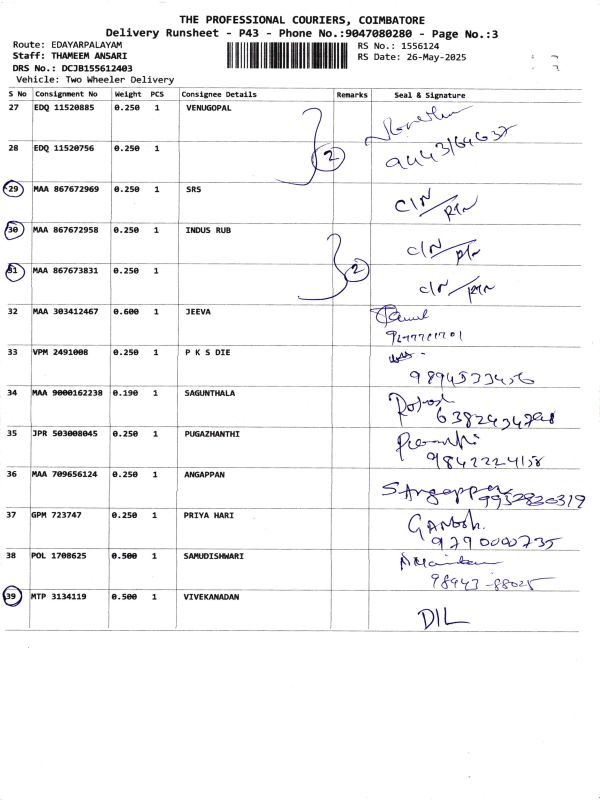 THE PROFESSIONAL COURIERS, COIMBATORE
Delivery Runsheet - P43 - Phone No.:9047080280 - Page No.:3
Route: EDAYARPALAYAM
Staff: THAMEEM ANSARI
DRS No.: DCJB155612403
Vehicle: Two Wheeler Delivery
RS No.: 1556124
RS Date: 26-May-2025
S No Consignment No Weight PCS Consignee Details Remarks Seal & Signature
27 EDQ 11520885 0.250 1 VENUGOPAL
28 EDQ 11520756 0.250 1 2
29 MAA 867672969 0.250 1 SRS C/N
30 MAA 867672958 0.250 1 INDUS RUB C/N
31 MAA 867673831 0.250 1 2 C/N
32 MAA 303412467 0.600 1 JEEVA
33 VPM 2491008 0.250 1 P K S DIE 9894533456
34 MAA 9000162238 0.190 1 SAGUNTHALA
35 JPR 503008045 0.250 1 PUGAZHANTHI 9842224158
36 MAA 709656124 0.250 1 ANGAPPAN S.Angappan
37 GPM 723747 0.250 1 PRIYA HARI GANESH. 9790000735
38 POL 1708625 0.500 1 SAMUDISHWARI 98943-88025
39 MTP 3134119 0.500 1 VIVEKANADAN DIL